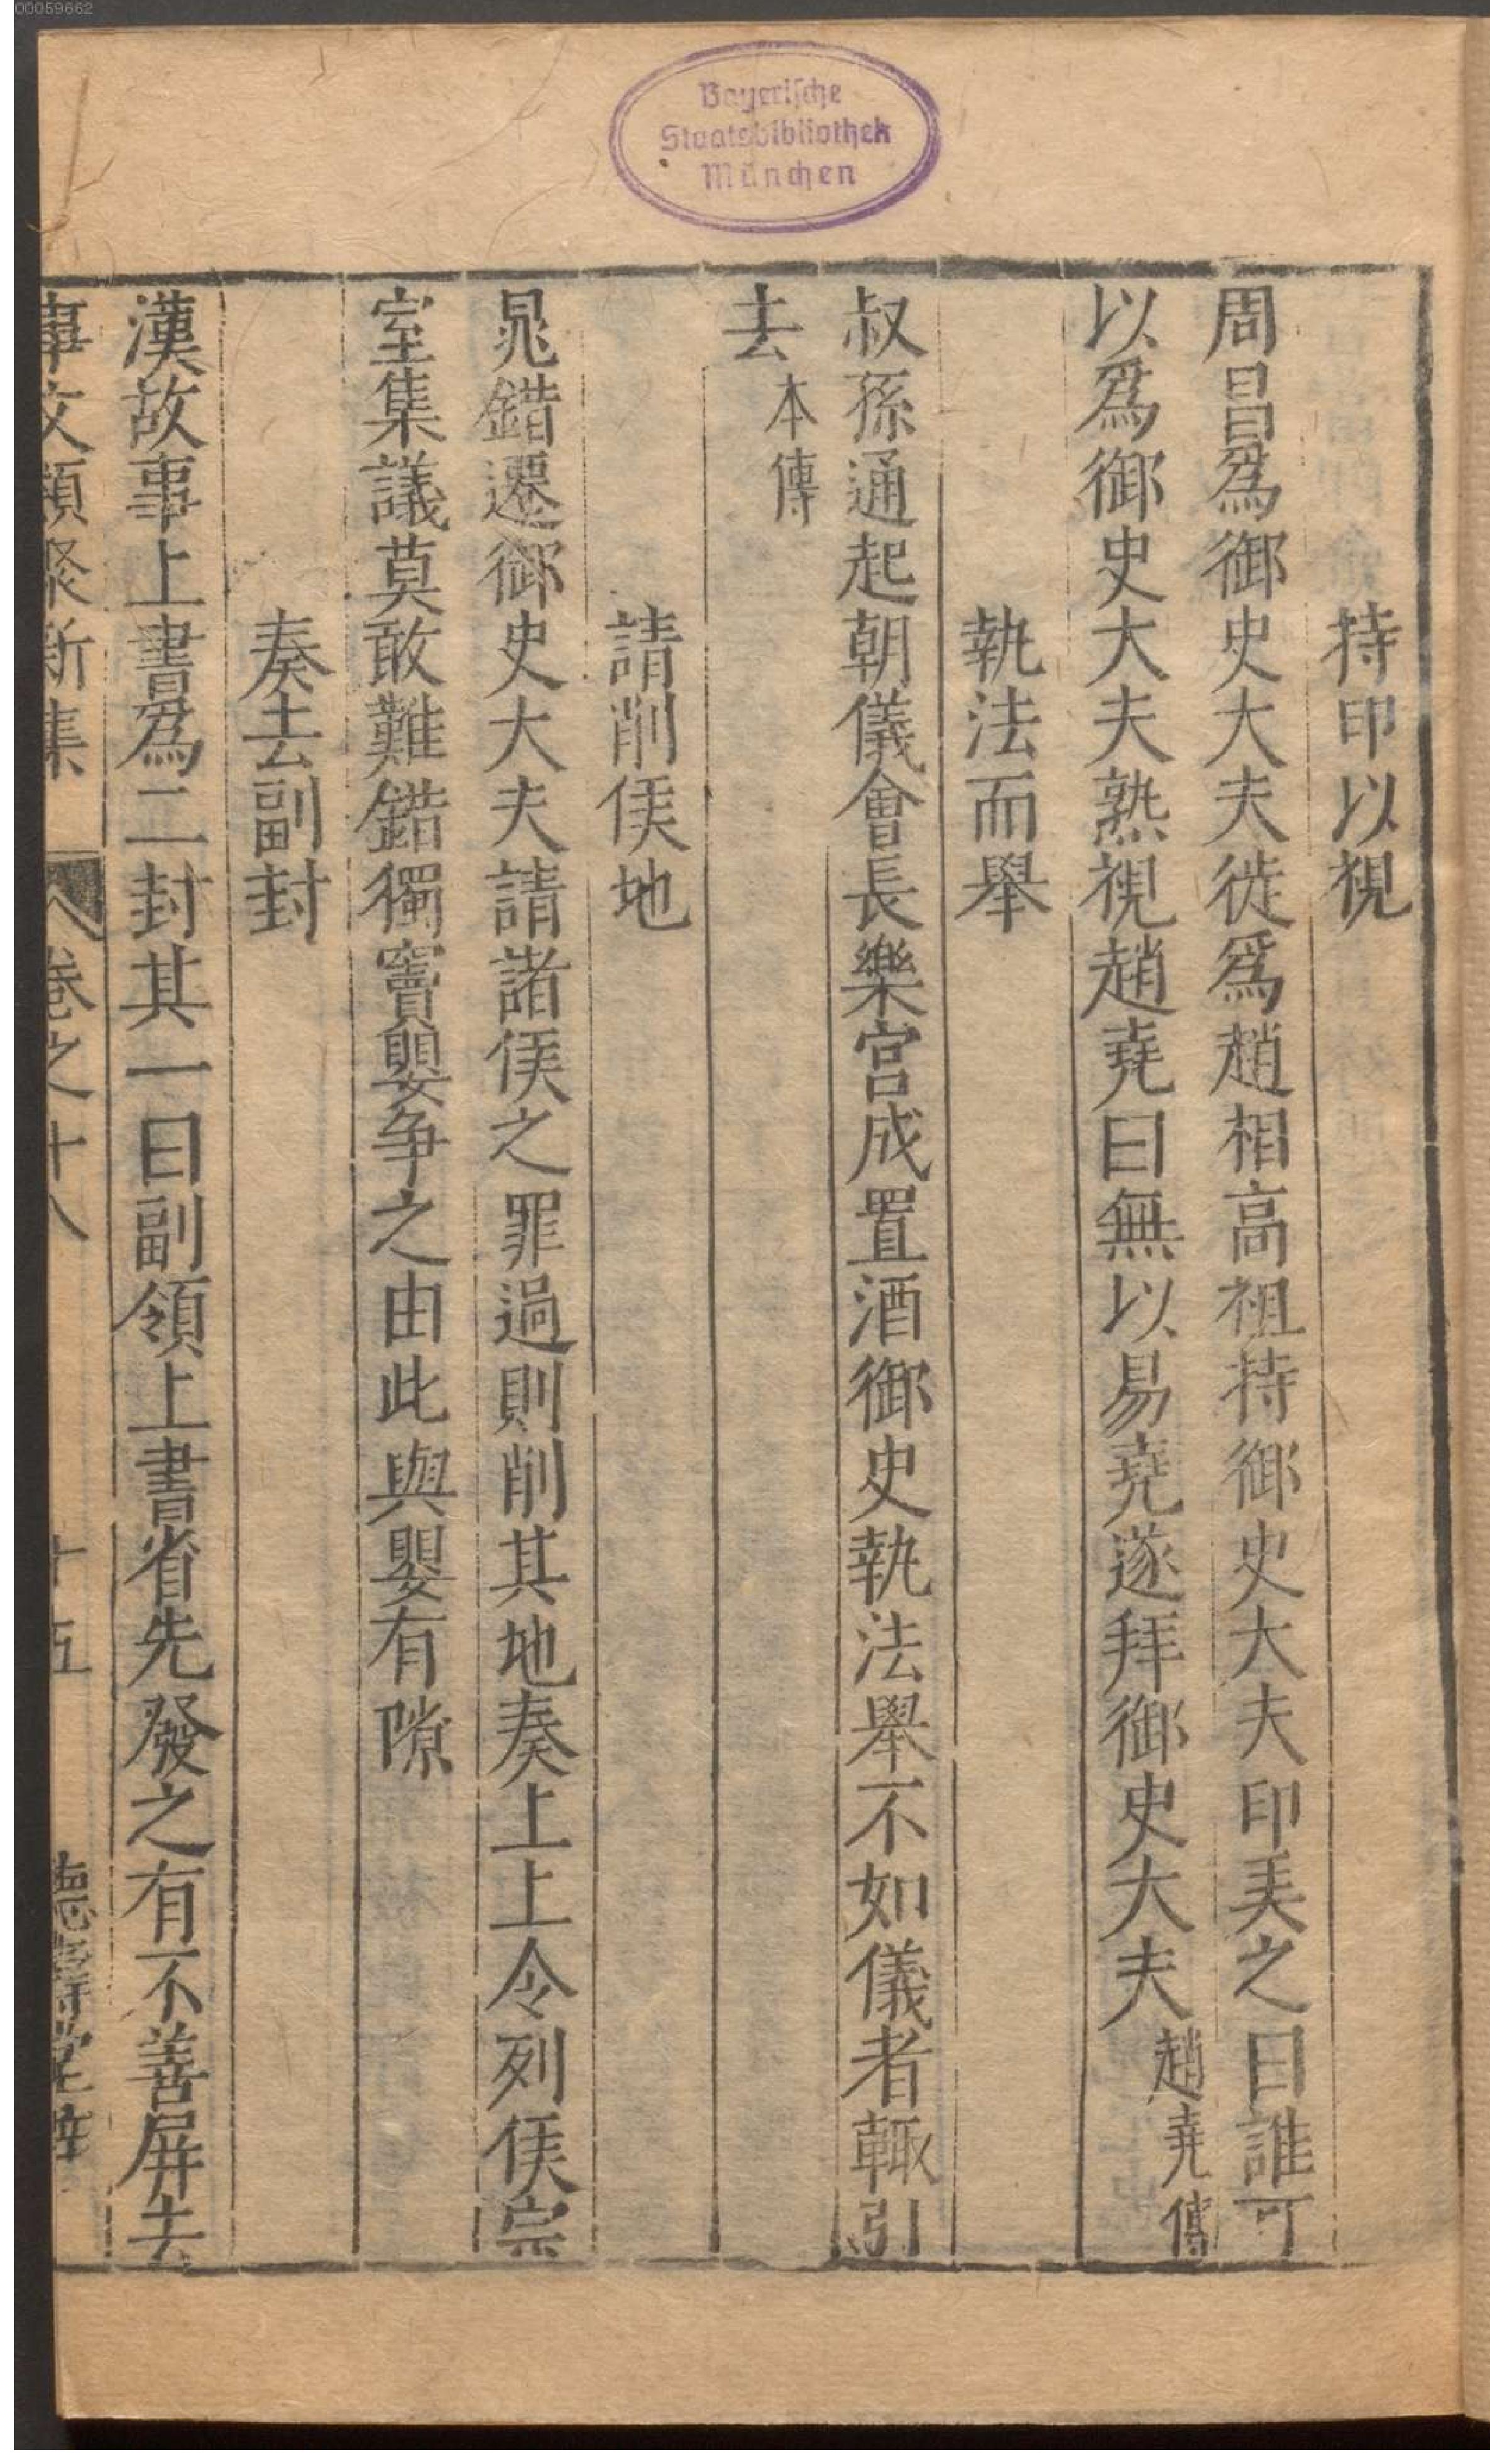 00059662
Bayerische
Staatsbibliothek
München
持印以視
周昌為御史大夫徙爲趙相高祖持御史大夫印美之曰誰可
以爲御史大夫熟視趙堯曰無以易堯遂拜御史大夫趙堯傳
執法而舉
叔孫通起朝儀會長樂宮成置酒御史執法舉不如儀者輙引
去本傳
請削侯地
晁錯遷御史大夫請諸侯之罪過則削其地奏上上令列侯宗
室集議莫敢難錯獨竇嬰争之由此與嬰有隙
奏去副封
漢故事上書為二封其一曰副領上書省先發之有不善屏去
事文類聚新集 卷之十八 十五 德壽堂梓